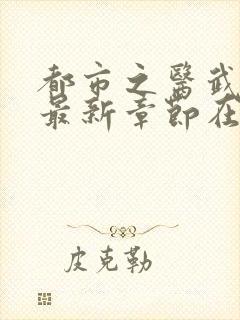 都市之医武
最新章節在
皮克勒